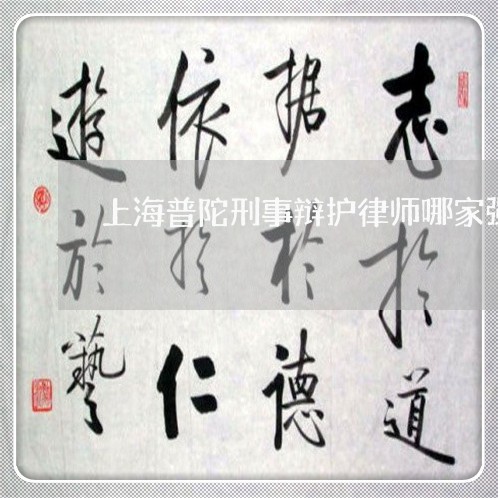 志於道
据於德
依於仁
遊於藝
上海普陀刑事辩护律师哪家强